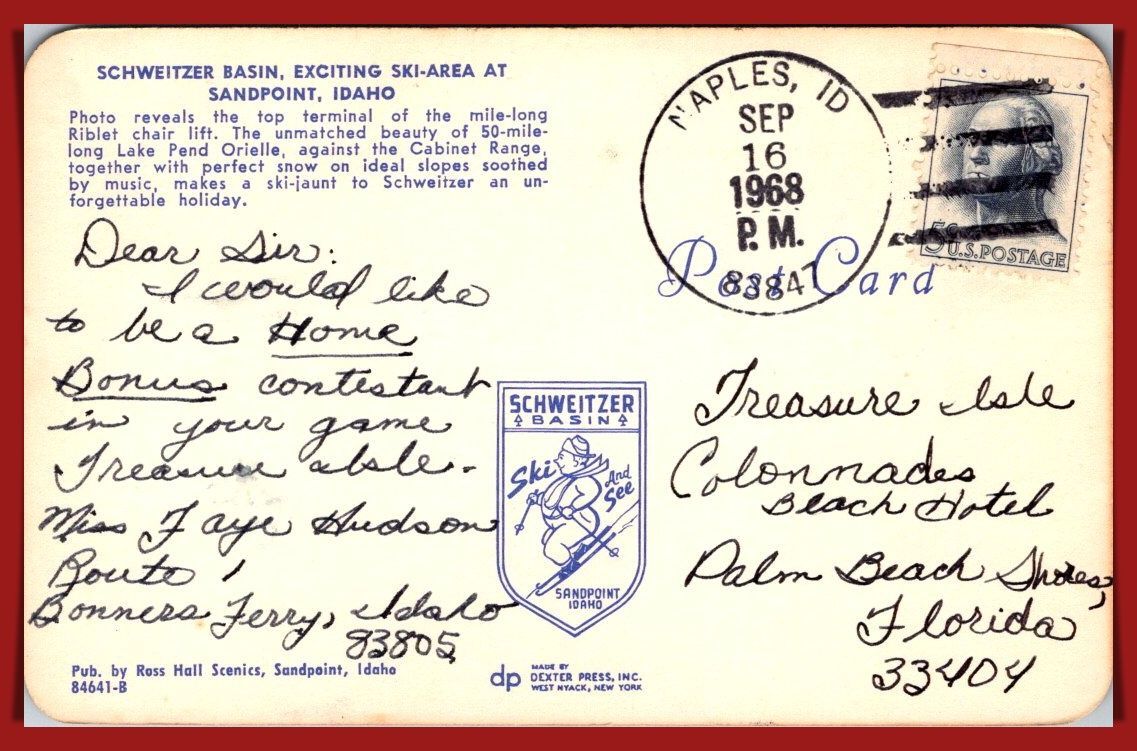 SCHWEITZER BASIN, EXCITING SKI-AREA AT
SANDPOINT, IDAHO
Photo reveals the top terminal of the mile-long
Riblet chair lift. The unmatched beauty of 50-mile-
long Lake Pend Orielle, against the Cabinet Range,
together with perfect snow on ideal slopes soothed
by music, makes a ski-jaunt to Schweitzer an un-
forgettable holiday.
Dear Sir:
I would like
to be a Home
Bonus contestant
in your game
Treasure Isle.
Miss Faye Hudson
Route 1
Bonners Ferry, Idaho
83805
Pub. by Ross Hall Scenics, Sandpoint, Idaho
84641-B
SCHWEITZER
BASIN
Ski And
See
SANDPOINT
IDAHO
dp MADE BY
DEXTER PRESS, INC.
WEST NYACK, NEW YORK
NAPLES, ID
SEP
16
1968
P.M.
83847
5¢ U.S. POSTAGE
Post Card
Treasure Isle
Colonnades
Beach Hotel
Palm Beach Shores,
Florida
33404